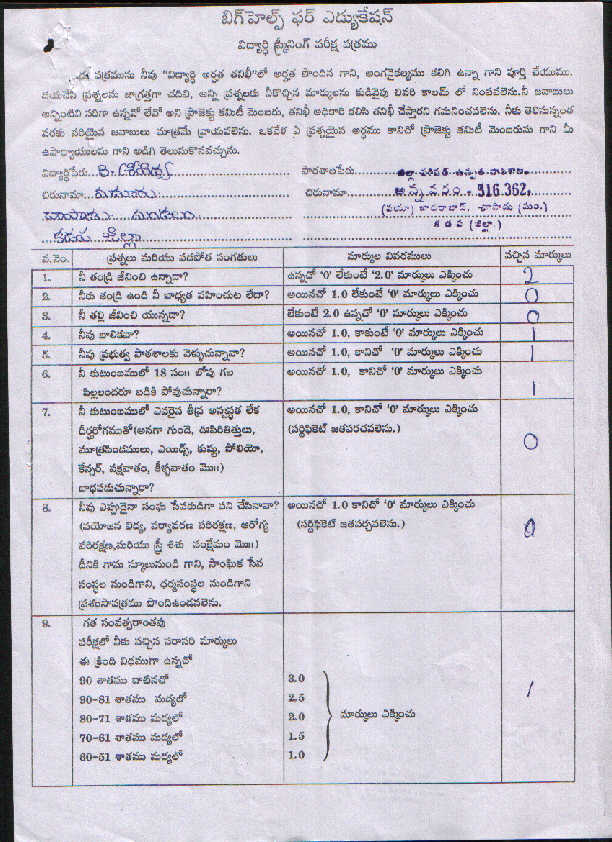 బిగ్‌హెల్ప్ ఫర్ ఎడ్యుకేషన్
విద్యార్థి స్క్రీనింగ్ పరీక్ష పత్రము
ఈ పత్రమును నీవు "విద్యార్థి అర్హత తనిఖీ"లో అర్హత పొందిన గాని, అంగవైకల్యము కలిగి ఉన్నా గాని పూర్తి చేయుము.
దయచేసి ప్రశ్నలను జాగ్రత్తగా చదివి, అన్ని ప్రశ్నలకు నీకొచ్చిన మార్కులను కుడివైపు చివరి కాలమ్ లో నింపవలెను.నీ జవాబులు
అన్నింటిని సరిగా ఉన్నవో లేవో అని ప్రాజెక్టు కమిటీ మెంబరు, తనిఖీ అధికారి కలిసి తనిఖీ చేస్తారని గమనించవలెను. నీకు తెలిసినంత
వరకు సరియైన జవాబులు మాత్రమే వ్రాయవలెను. ఒకవేళ ఏ ప్రశ్నయైన అర్థము కానిచో ప్రాజెక్టు కమిటీ మెంబరును గాని మీ
ఉపాధ్యాయులను గాని అడిగి తెలుసుకొనవచ్చును.
విద్యార్థిపేరు పాఠశాలపేరు జిల్లా పరిషత్ ఉన్నత పాఠశాల
చిరునామా చిరునామా 516.362.
చాపాడు మండలం (వయా) ఖాదరాబాద్, చాపాడు (మం.)
కడప జిల్లా కడప (జిల్లా)
వ.నెం. ప్రశ్నలు మరియు పరిశోధన సంగతులు మార్కుల వివరములు వచ్చిన మార్కులు
1. నీ తండ్రి జీవించి ఉన్నాడా? ఉన్నచో '0' లేకుంటే '2.0' మార్కులు ఎక్కించు 2
2. నీకు తండ్రి ఉండి నీ బాధ్యత వహించుట లేదా? అయినచో 1.0 లేకుంటే '0' మార్కులు ఎక్కించు 0
3. నీ తల్లి జీవించి యున్నదా? లేకుంటే 2.0 ఉన్నచో '0' మార్కులు ఎక్కించు 0
4. నీవు బాలికవా? అయినచో 1.0, కాకుంటే '0' మార్కులు ఎక్కించు 1
5. నీవు ప్రభుత్వ పాఠశాలకు వెళ్ళుచున్నావా? అయినచో 1.0, కానిచో '0' మార్కులు ఎక్కించు 1
6. నీ కుటుంబములో 18 సం॥ లోపు గల అయినచో 1.0, కానిచో '0' మార్కులు ఎక్కించు
పిల్లలందరూ బడికి పోవుచున్నారా? 1
7. నీ కుటుంబములో ఎవరైన తీవ్ర అస్వస్థత లేక అయినచో 1.0, కానిచో '0' మార్కులు ఎక్కించు
దీర్ఘరోగముతో(అనగా గుండె, ఊపిరితిత్తులు, (సర్టిఫికెట్ జతపరచవలెను.)
మూత్రపిండములు, ఎయిడ్స్, కుష్టు, పోలియో, 0
కేన్సర్, పక్షవాతం, కీళ్ళవాతం మొ॥)
బాధపడుచున్నారా?
8. నీవు ఎప్పుడైనా సంఘ సేవకుడిగా పని చేసినావా? అయినచో 1.0 కానిచో '0' మార్కులు ఎక్కించు
(వయోజన విద్య, పర్యావరణ పరిరక్షణ, ఆరోగ్య (సర్టిఫికెట్ జతపర్చవలెను.) 0
పరిరక్షణ,మరియు స్త్రీ శిశు సంక్షేమం మొ॥)
దీనికి గాను స్కూలునుండి గాని, సాంఘిక సేవ
సంస్థల నుండిగాని, ధర్మసంస్థల నుండిగాని
ప్రశంసాపత్రము పొందిఉండవలెను.
9. గత సంవత్సరాంతపు
పరీక్షలో నీకు వచ్చిన సరాసరి మార్కులు
ఈ క్రింది విధముగా ఉన్నచో
90 శాతము దాటినచో 3.0
90-81 శాతము మధ్యలో 2.5 1
80-71 శాతము మధ్యలో 2.0 మార్కులు ఎక్కించు
70-61 శాతము మధ్యలో 1.5
60-51 శాతము మధ్యలో 1.0